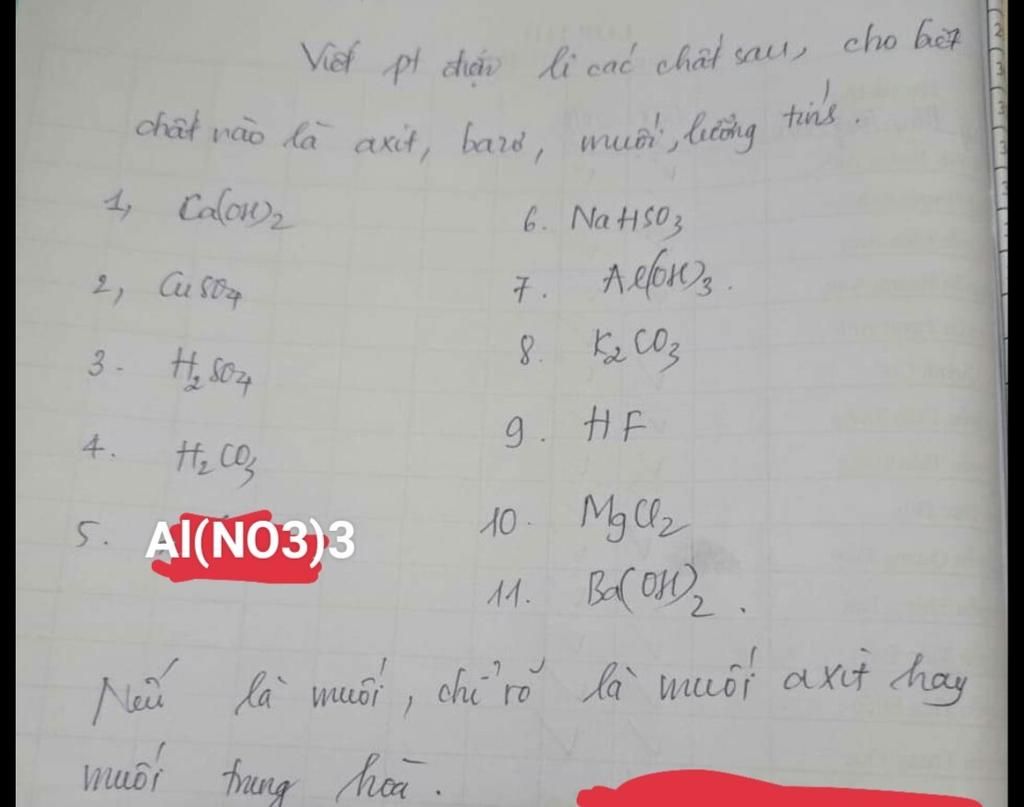 Viết pt điện li các chất sau, cho biết
chất nào là axit, bazơ, muối, lưỡng tính.
1, Ca(OH)2
2, CuSO4
3. H2SO4
4. H2CO3
5. Al(NO3)3
6. NaHSO3
7. Al(OH)3.
8. K2CO3
9. HF
10. MgCl2
11. Ba(OH)2.
Nếu là muối, chỉ rõ là muối axit hay
muối trung hoà.